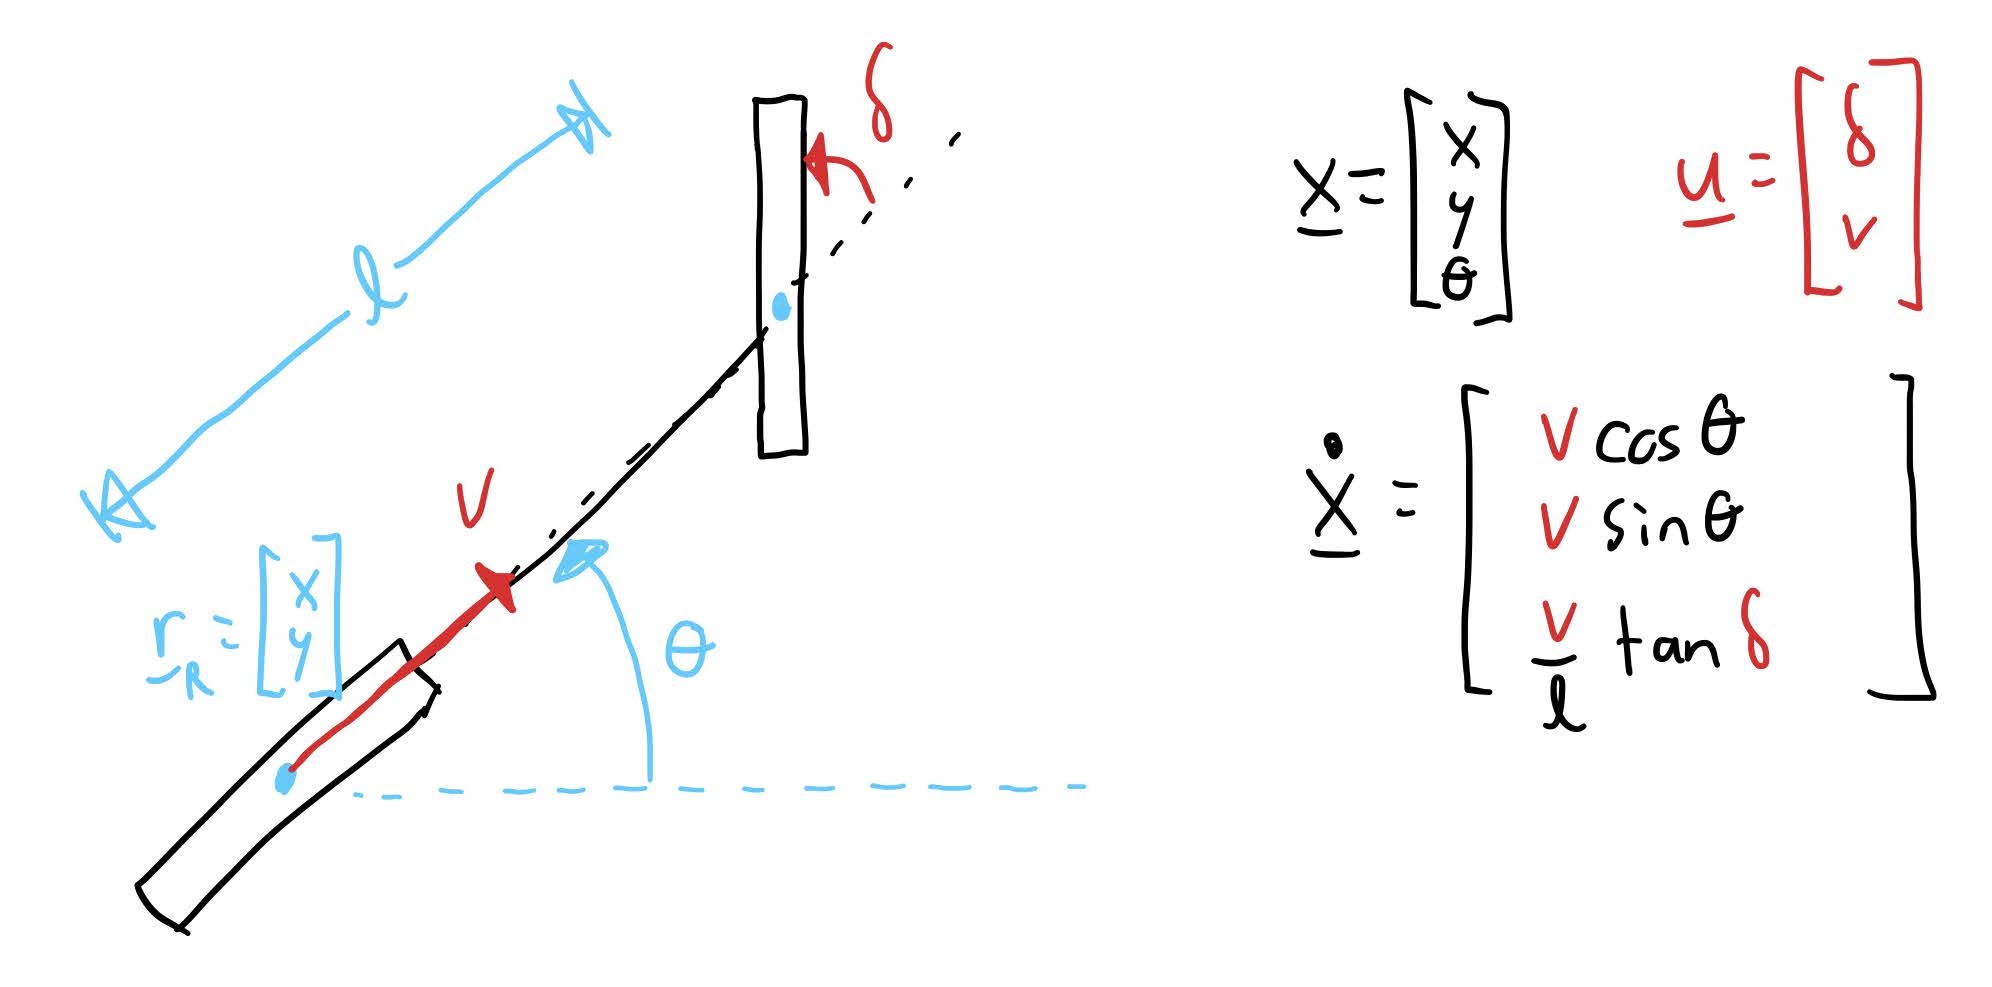 δ
l
v
r_R = [x y]
θ
x = [x y θ]
u = [δ v]
ẋ = [v cos θ
v sin θ
v/l tan δ]